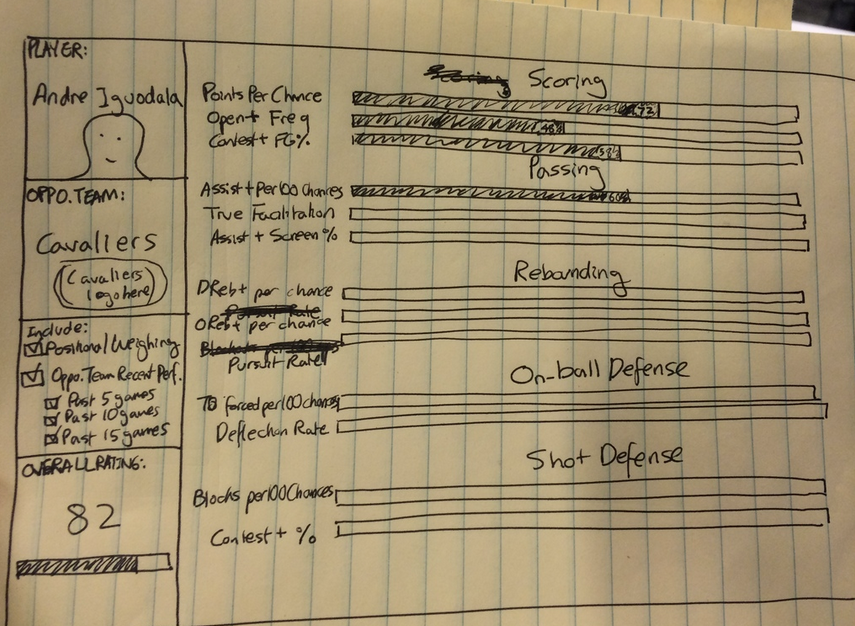 PLAYER:
Andre Iguodala
OPPO. TEAM:
Cavaliers
(Cavaliers
logo here)
Include:
Positional Weighing
Oppo. Team Recent Perf.
Past 5 games
Past 10 games
Past 15 games
OVERALL RATING:
82
Scoring
Points Per Chance
72
Open+ Freq
48%
Contest+ FG%
Passing
Assist+ Per 100 Chances
60
True Facilitation
Assist + Screen %
Rebounding
DReb+ per chance
OReb+ per chance
Pursuit Rate
On-ball Defense
TO forced per 100 chances
Deflection Rate
Shot Defense
Blocks per 100 Chances
Contest + %